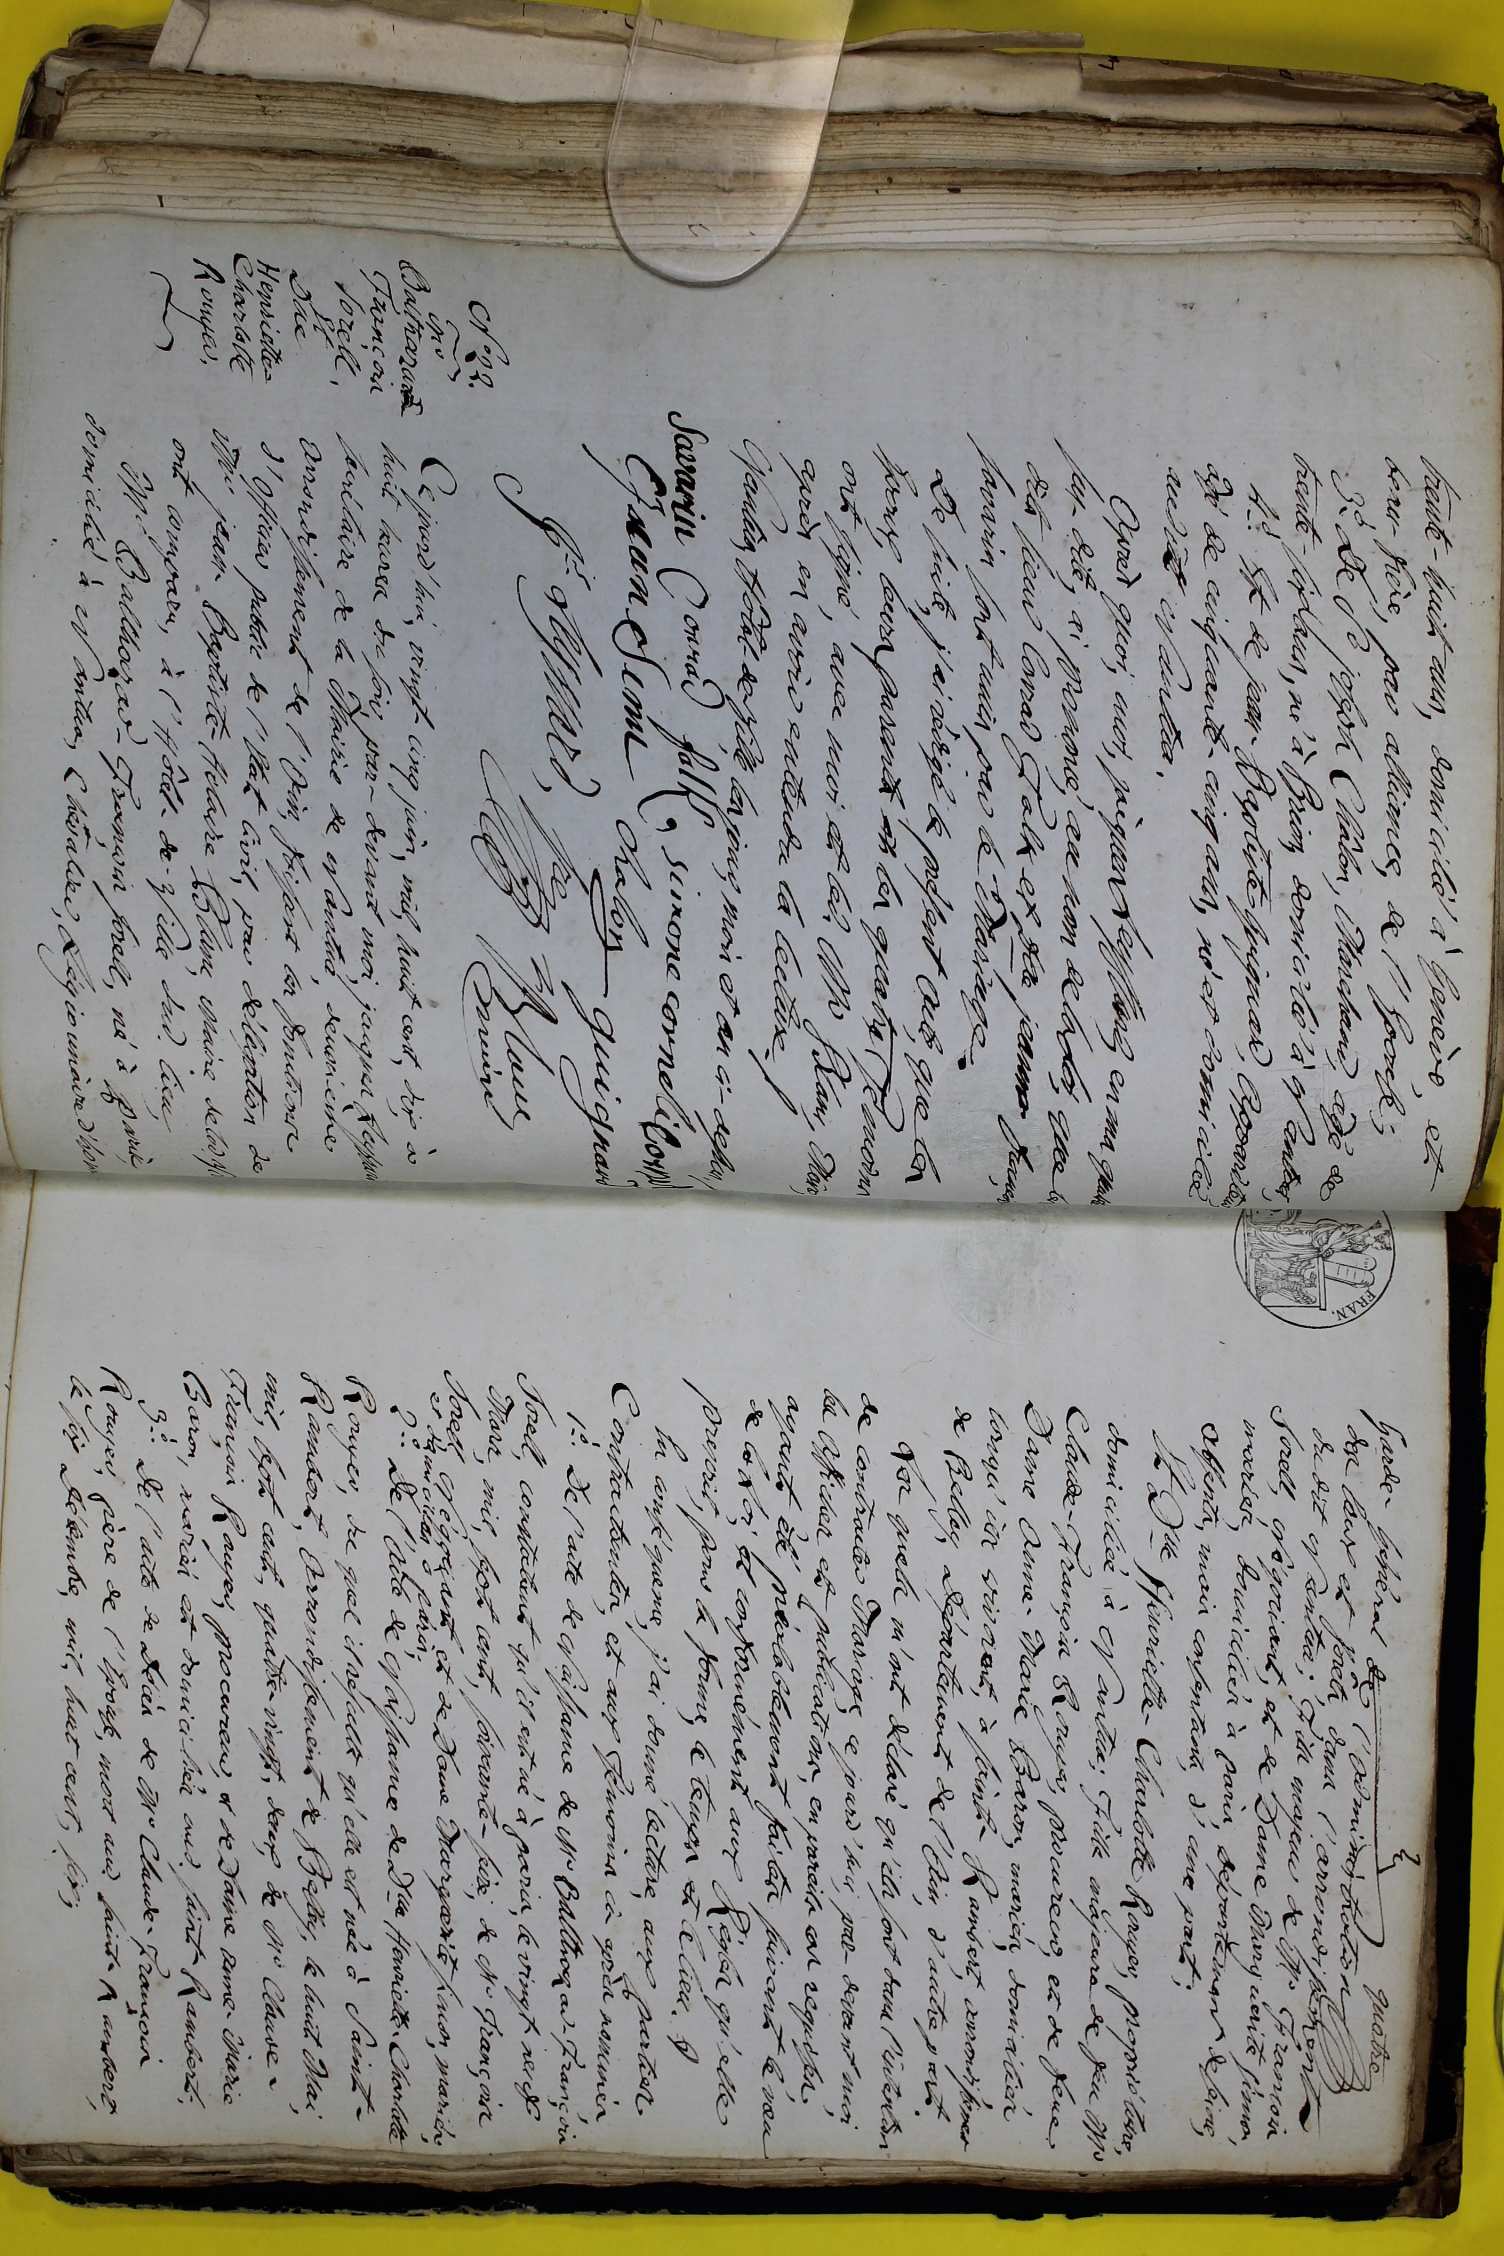 trente-huit ans, domicilié à Genève, et
beau-frère, par alliance, de l'Epouse;
3.° De S.r joseph Châlon, Marchand, âgé de
trente-six ans, né à Brion, domicilié à Nantua;
4.° Et de jean-Baptiste Guignard,
âgé de cinquante-cinq ans, né et domicilié
audit Nantua.
Après quoi, moi, jacques en ma qualité
sus-dite, ai prononcé, au nom de la loi, que le
dit sieur Conrad Falk et D.lle jeanne
Savarin sont unis par le Mariage.
De suite, j'ai rédigé le présent acte, que les
Epoux, leurs parents et les quatre Témoins
ont signé, avec moi et led. M. Blanc, Maire,
après en avoir entendu la lecture.
Nantua, Hôtel-de-Ville les jour, mois et an ci-dessus.
Savarin Conrad falk, simone
Chalon guignard
Blanc
maire
N.° 2.
M.r
Balthazard
François
Sorell,
et
D.lle
Henriette
Charlotte
Rouyer.
Ce jourd'hui, vingt-cinq juin, mil huit cent dix, à
huit heures du soir, par-devant moi, jacques
secrétaire de la Mairie de Nantua, deuxième
arrondissement de l'Ain, faisant les fonctions
d'officier public de l'état civil, par délégation de
M.r jean-Baptiste-Hilaire Blanc, maire de lad. V.
ont comparu, à l'hôtel-de-Ville dud. lieu,
M.r Balthazard-François Sorell, né à Paris,
domicilié à Nantua, Chevalier, Légionnaire d'honneur
quatre
2
FRAN.
Garde-Général de l'administration
des Eaux et forêts, dans l'arrondissement
dudit Nantua; Fils majeur de M.r François
Sorell, Négociant, et de Dame Marguerite Simon,
mariés, domiciliés à Paris, département de Seine,
absents, mais consentants, d'une part;
Et D.lle Henriette-Charlotte Rouyer, propriétaire,
domiciliée à Nantua; Fille majeure de feu M.r
Claude-François Rouyer, procureur, et de feue
Dame Anne-Marie Baron, mariés, domiciliés
lorsqu'ils vivoient, à Saint-Rambert, arrondissement
de Belley, Département de l'Ain, d'autre part.
Lesquels m'ont déclaré qu'ils sont dans l'intention
de contracter Mariage, ce jourd'hui, par devant moi;
les affiches et publications, en pareil cas requises,
ayant été préalablement faites suivant le vœu
de la loi, et conformément aux Règles qu'elle
prescrit, pour la forme, le temps et le lieu.
En conséquence, j'ai donné lecture, aux parties
Contractantes, et aux Témoins ci-après nommés
1.° De l'acte de naissance de M.r Balthazard-François
Sorell, constatant qu'il est né à paris, le vingt-neuf
Mars, mil, sept cent, soixante-seize, de M.r François
Sorell, Négociant et de Dame Marguerite Simon, mariés,
et domiciliés à paris;
2.° De l'acte de naissance de D.lle Henriette-Charlotte
Rouyer, duquel il résulte qu'elle est née à Saint-
Rambert, Arrondissement de Belley, le huit Mai,
mil, sept cent, quatre-vingt, deux, de M.r Claude-
François Rouyer, procureur, et de Dame Anne-Marie
Baron, mariés et domiciliés aud. Saint-Rambert;
3.° De l'acte de décès de M.r Claude-François
Rouyer, père de l'Epouse, mort aud. saint-Rambert,
le six Décembre, mil, huit cent, six;